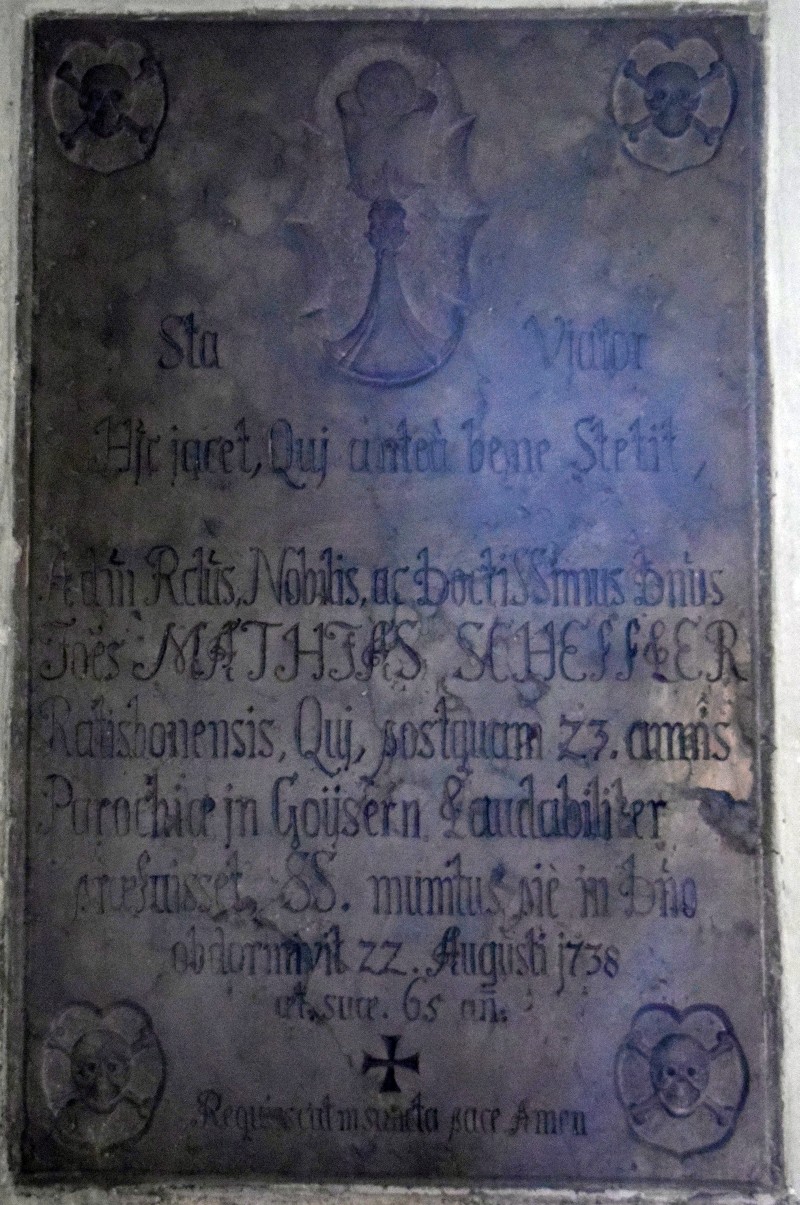 Sta Viator
Hic jacet, Quj anteà bene Stetit,
Adm̃ Rd̃us, Nobilis, ac DoctiSSimus Dn̄us
Joẽs MATHIAS SCHEFFLER
Ratisbonensis, Quj, postquam 23. annis
Parochiæ jn Goÿsern Laudabiliter
præfuisset, SS. munitus, piè in Dn̄o
obdormivit 22. Augusti j738
æt. suæ. 65 añ:
Requiescat in sancta pace Amen